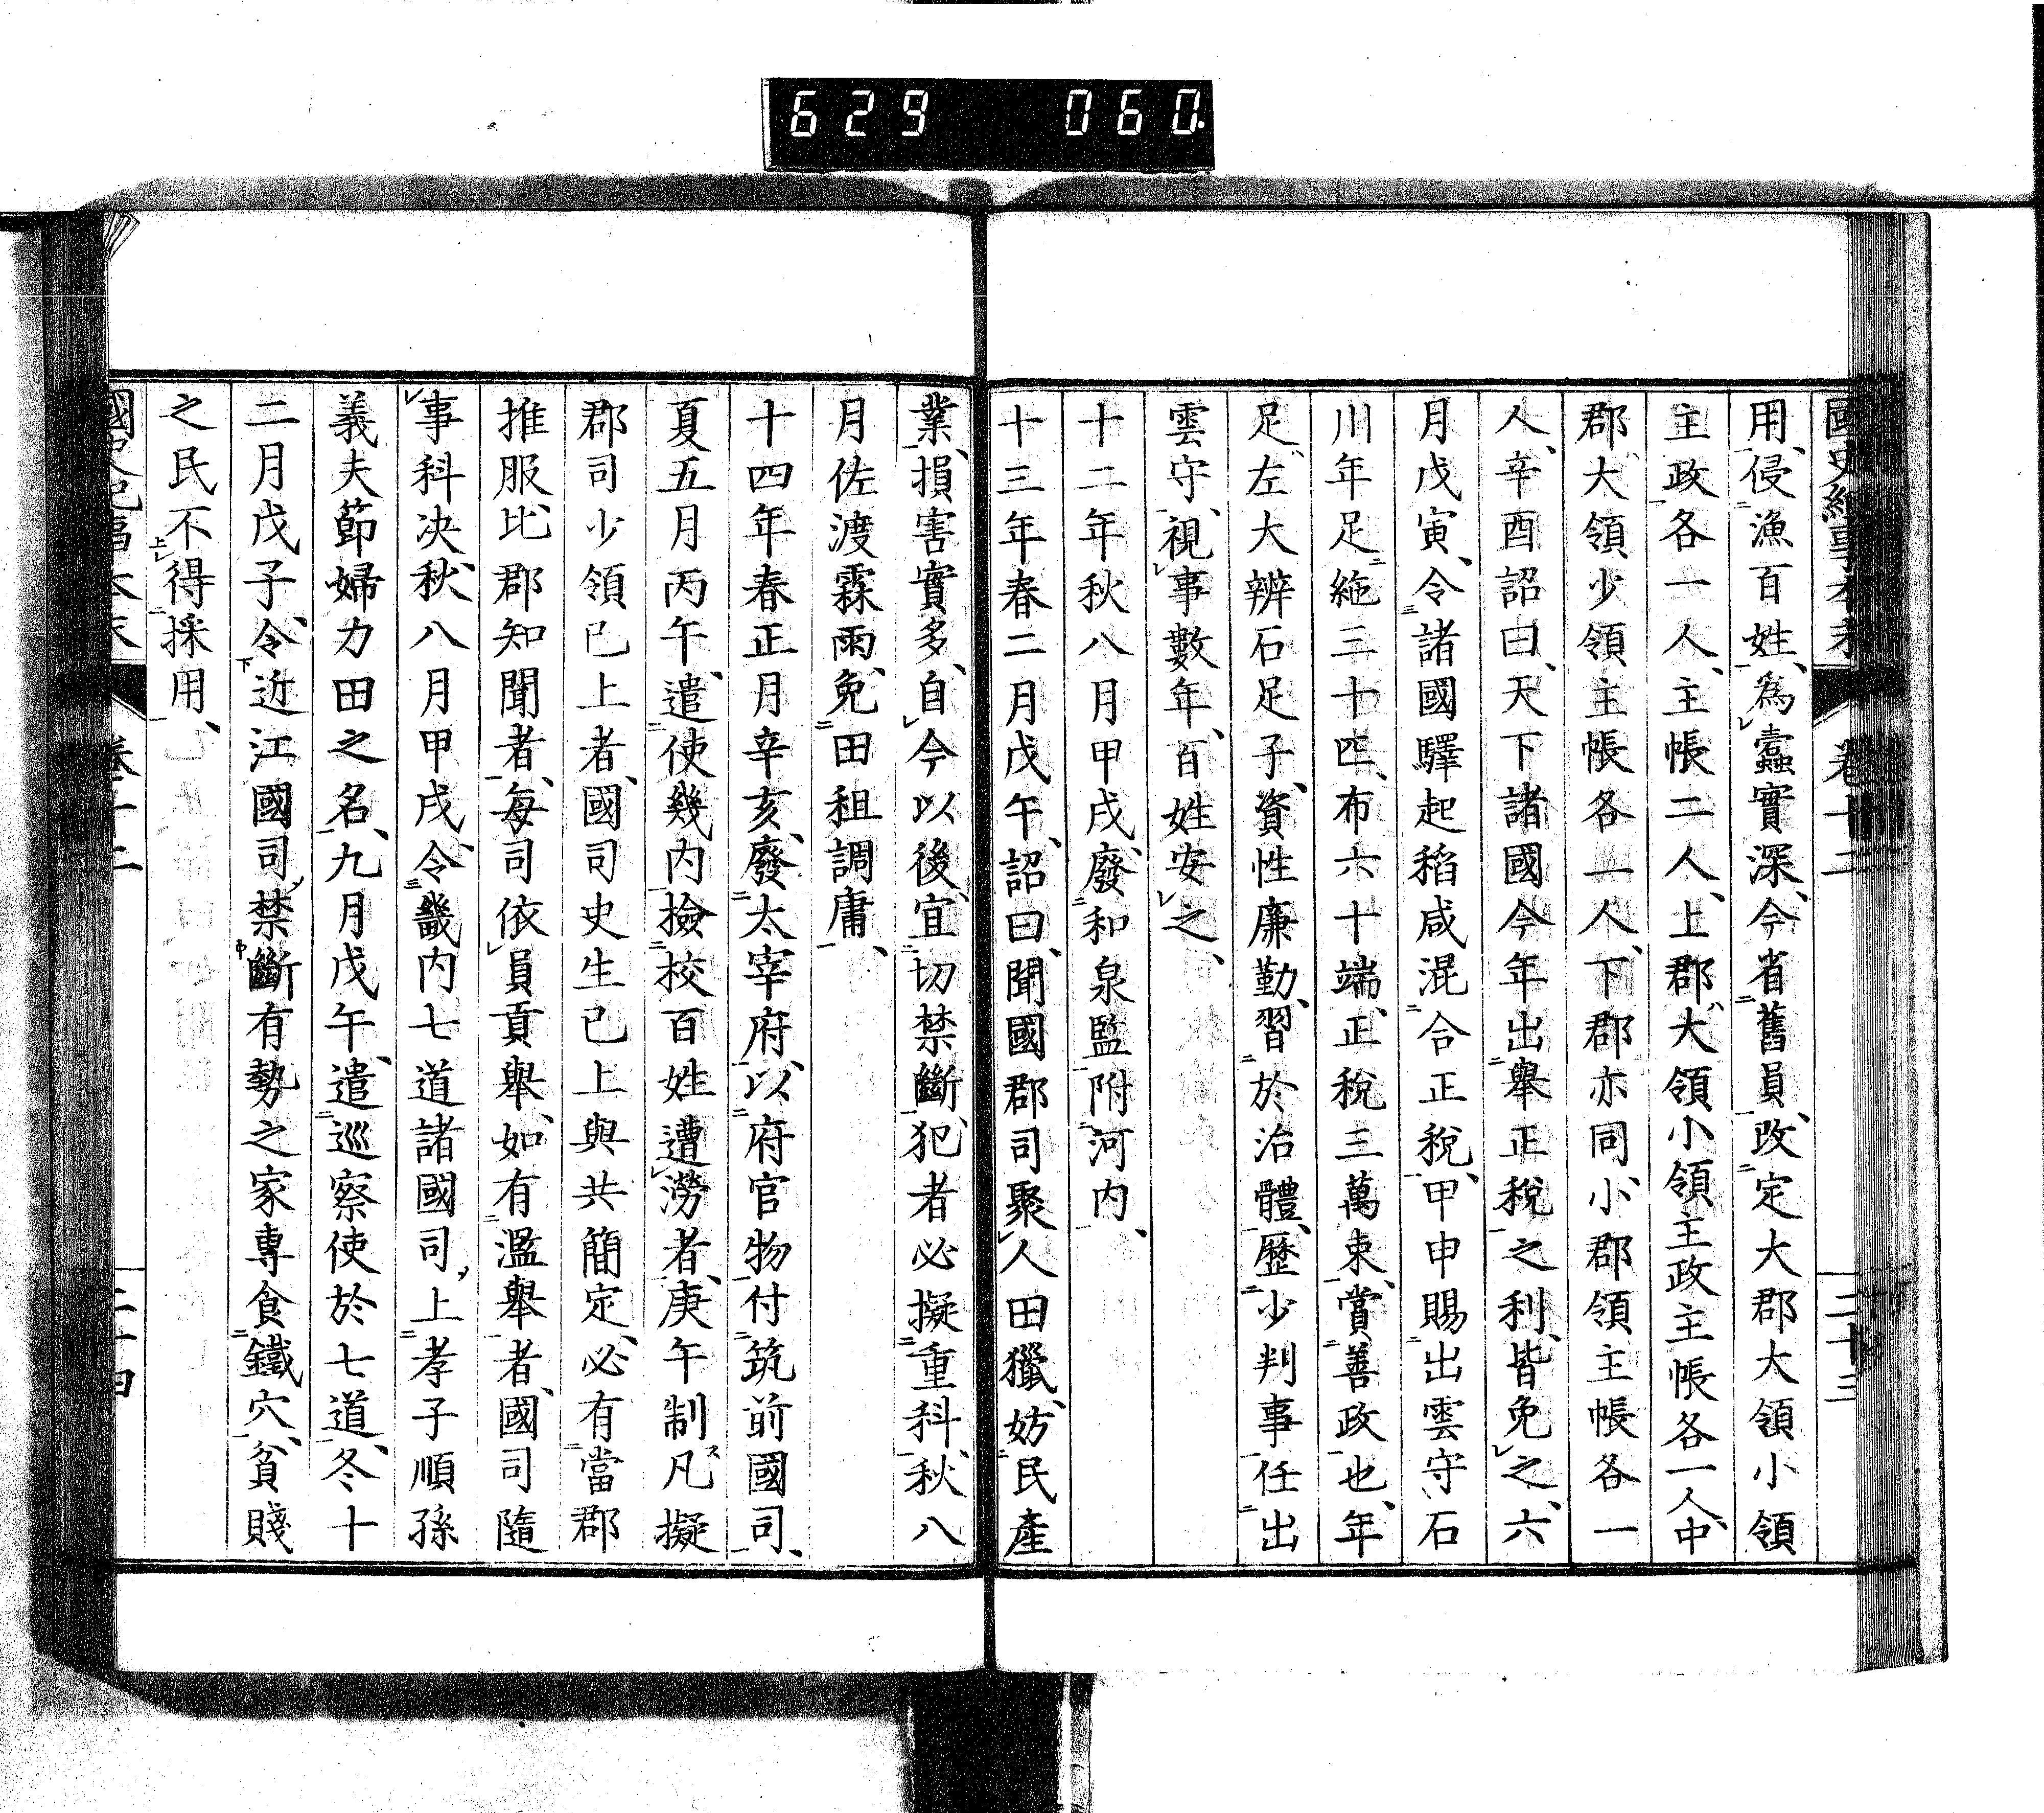 629 060
國史紀事本末 卷十二 二十三
用、侵漁百姓、爲蠹實深、今省舊員、改定大郡大領小領
主政各一人、主帳二人、上郡大領小領主政主帳各一人、中
郡大領少領主帳各一人、下郡亦同、小郡領主帳各一
人、辛酉詔曰、天下諸國今年出擧正稅之利、皆免之、六
月戊寅、令諸國驛起稻咸混合正稅、甲申賜出雲守石
川年足絁三十匹、布六十端、正稅三萬束、賞善政也、年
足、左大辨石足子、資性廉勤、習於治體、歷少判事任出
雲守、視事數年、百姓安之、
十二年秋八月甲戌、廢和泉監附河內、
十三年春二月戊午、詔曰、聞國郡司聚人田獵、妨民產
業、損害實多、自今以後、宜切禁斷、犯者必擬重科、秋八
月佐渡霖雨、免田租調庸、
十四年春正月辛亥、廢太宰府、以府官物付筑前國司、
夏五月丙午、遣使幾內撿校百姓遭澇者、庚午制凡擬
郡司少領已上者、國司史生已上與共簡定、必有當郡
推服、比郡知聞者、每司依員貢舉、如有濫舉者、國司隨
事科決、秋八月甲戌、令畿內七道諸國司、上孝子順孫
義夫節婦力田之名、九月戊午、遣巡察使於七道、冬十
二月戊子、令近江國司、禁斷有勢之家專貪鐵穴、貧賤
之民不得採用、
國史紀事本末 卷十二 二十四